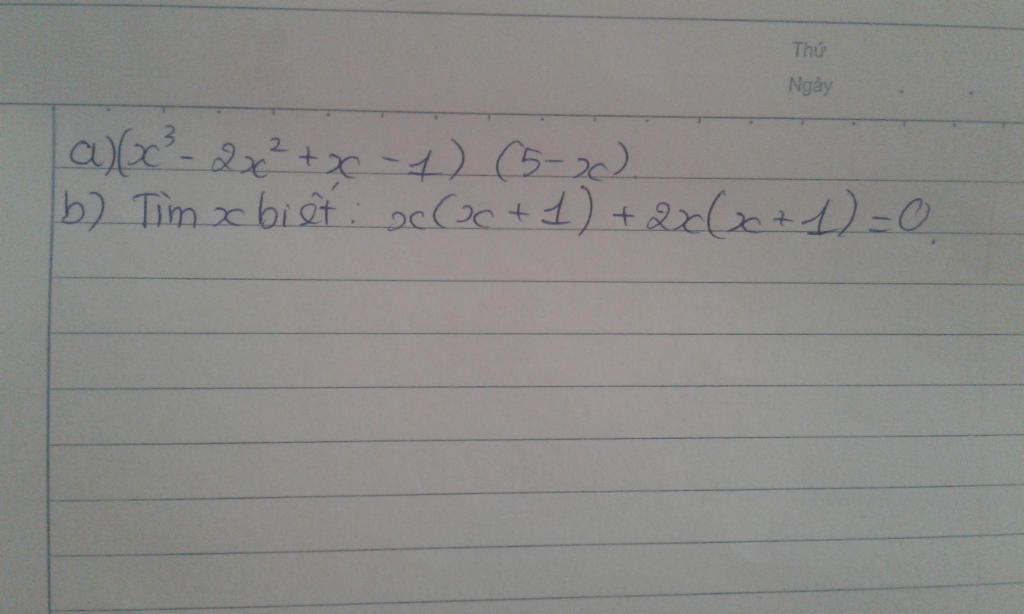 Thứ
Ngày
a)(x³ - 2x² + x - 1) (5 - x).
b) Tìm x biết: x(x + 1) + 2x(x + 1) = 0.